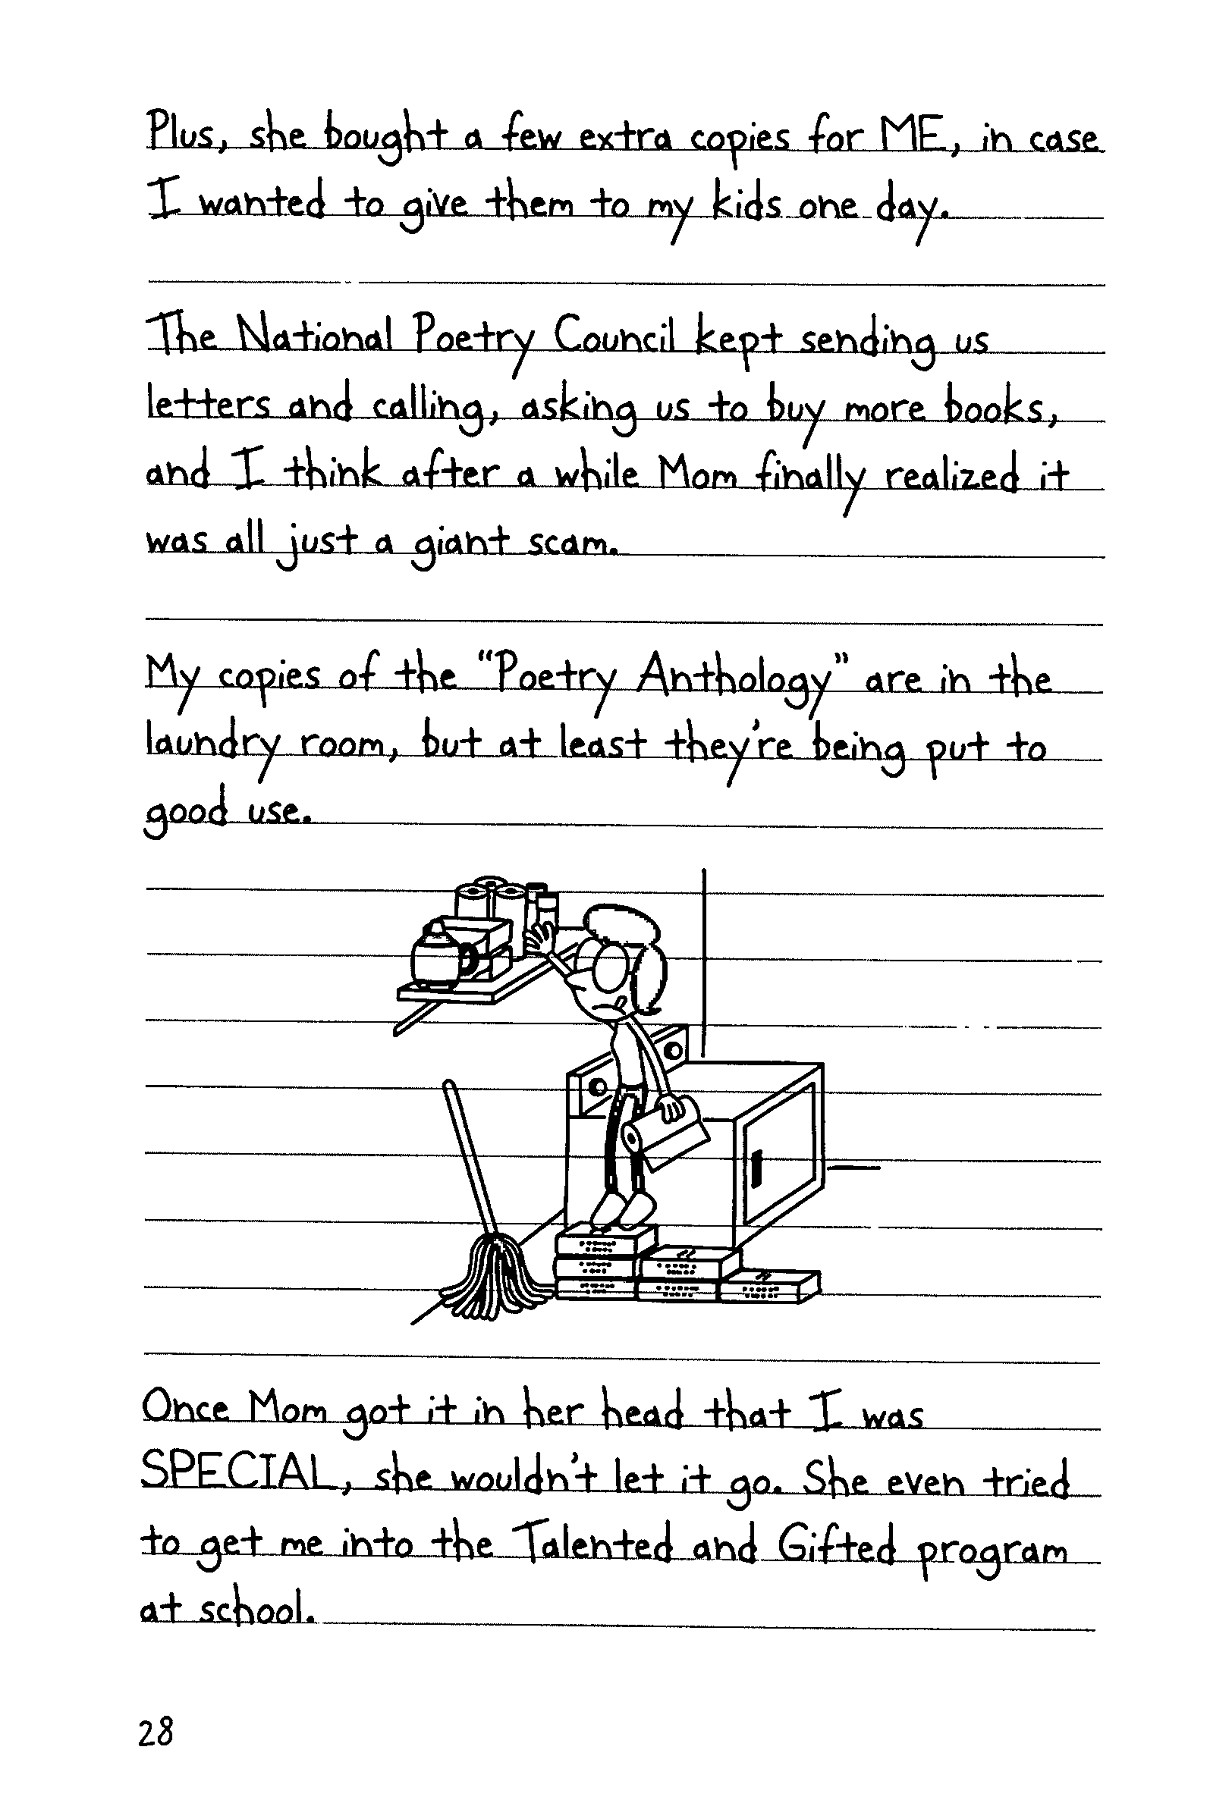 Plus, she bought a few extra copies for ME, in case
I wanted to give them to my kids one day.
The National Poetry Council kept sending us
letters and calling, asking us to buy more books,
and I think after a while Mom finally realized it
was all just a giant scam.
My copies of the “Poetry Anthology” are in the
laundry room, but at least they’re being put to
good use.
Once Mom got it in her head that I was
SPECIAL, she wouldn’t let it go. She even tried
to get me into the Talented and Gifted program
at school.
28